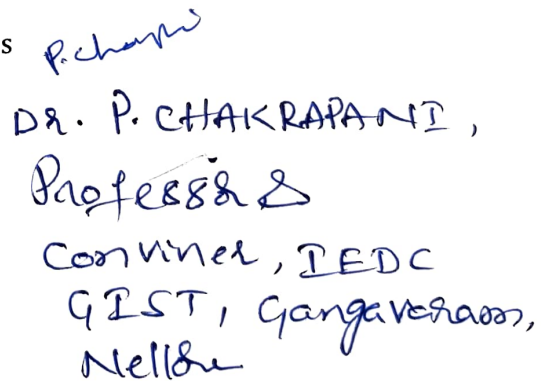 s
P. Chakri
DR. P. CHAKRAPANI,
Professor &
Conviner, IEDC
GIST, Gangavaram,
Nellore